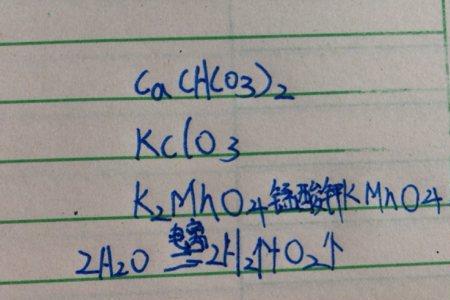 Ca(HCO3)2
KClO3
K2MnO4锰酸钾KMnO4
2H2O 电离 = 2H2↑+O2↑